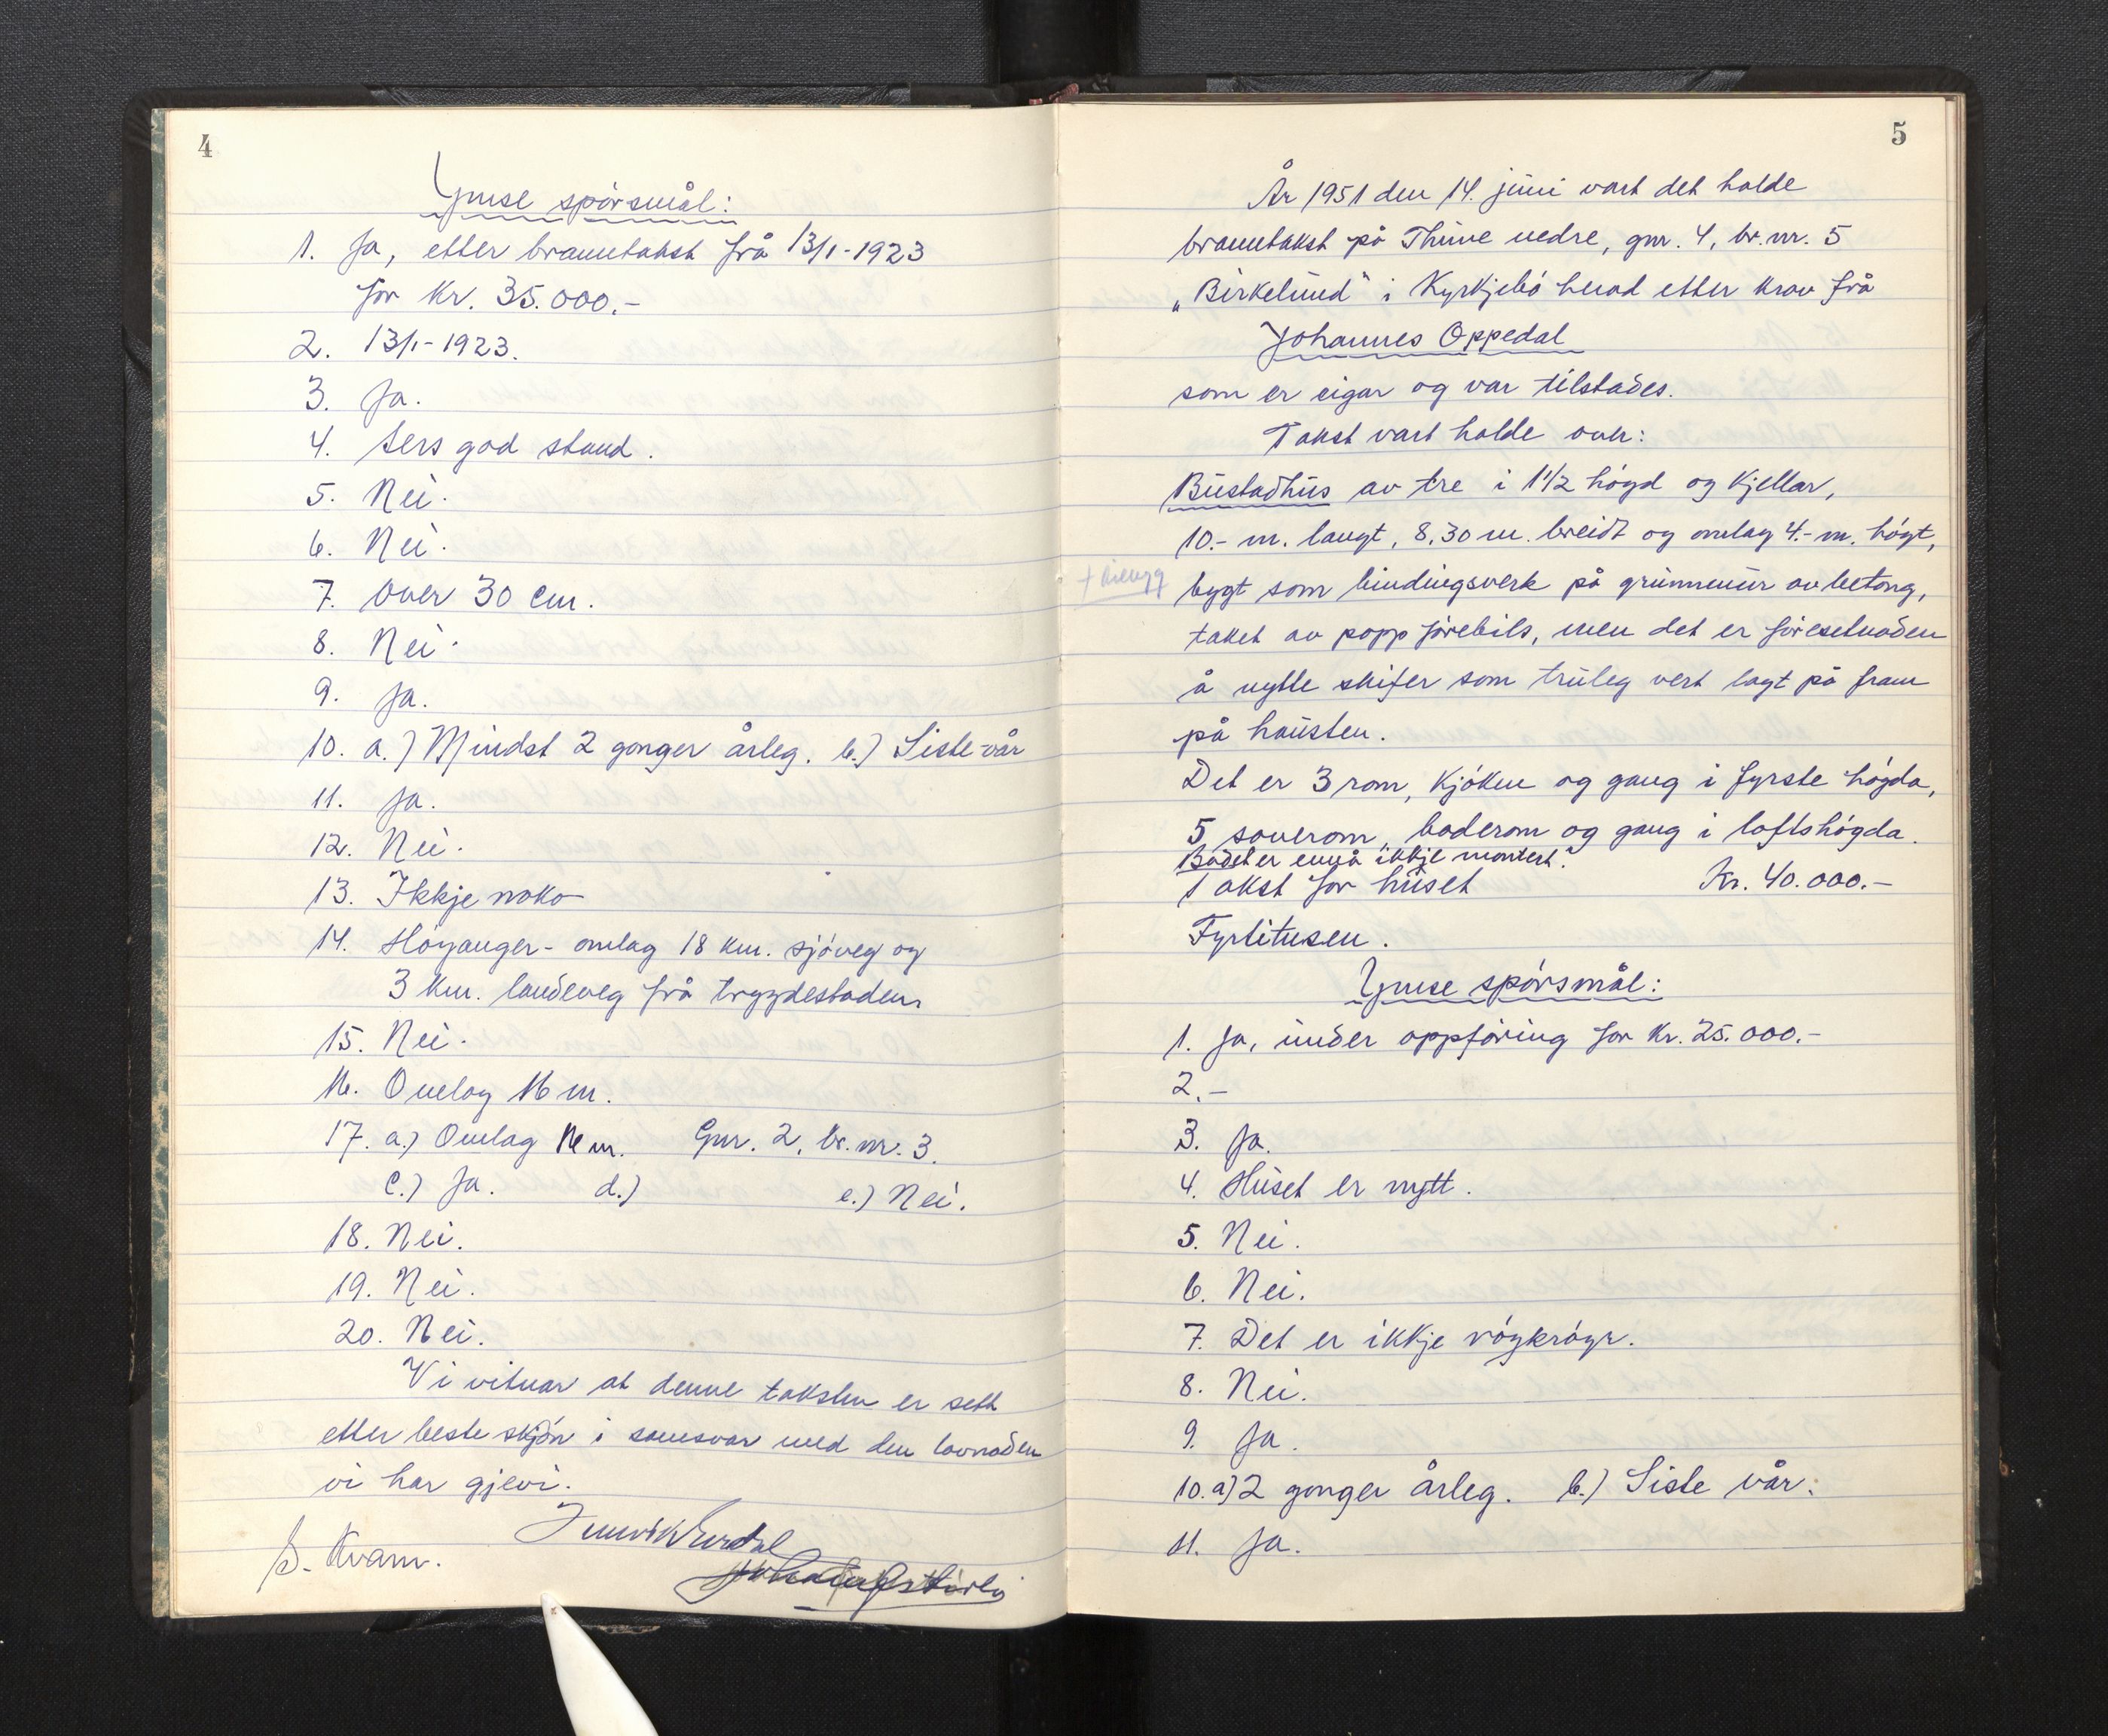 4
Ymse spörsmål:
1. Ja, etter branntakst frå 13/1-1923
for Kr. 35.000.-
2. 13/1-1923.
3. Ja.
4. Sers god stand.
5. Nei.
6. Nei.
7. Over 30 cm.
8. Nei.
9. Ja.
10. a.) Mindst 2 gonger årleg. b.) Siste vår
11. Ja.
12. Nei.
13. Ikkje noko
14. Höyanger - omlag 18 km. sjöveg og
3 km. landeveg frå trygdestaden.
15. Nei.
16. Omlag 16 m.
17. a.) Omlag 16 m. Gnr. 2, br. nr. 3.
c.) Ja. d.) e.) Nei.
18. Nei.
19. Nei.
20. Nei.
Vi vitnar at denne taksten er sett
etter beste skjön i samsvar med den lovnaden
vi har gjevi.
S. Kvam.
5
År 1951 den 14. juni vart det halde
branntakst på Thune nedre, gnr. 4, br. nr. 5
„Birkelund" i Kyrkjebö herad etter krav frå
Johannes Oppedal
som er eigar og var tilstades.
Takst vart halde over:
Bustadhus av tre i 1 1/2 högd og kjellar,
10.- m. langt, 8,30 m. breidt og omlag 4.- m. högt,
bygt som bindingsverk på grunnmur av betong,
taket av papp förebils, men det er föresetnaden
å nytte skifer som truleg vert lagt på fram
på hausten.
Det er 3 rom, kjöken og gang i fyrste högda,
5 soverom, baderom og gang i loftshögda.
Badet er ennå ikkje montert.
Takst for huset Kr. 40.000.-
Fyrtitusen.
Ymse spörsmål:
1. Ja, under oppföring for Kr. 25.000.-
2. -
3. Ja.
4. Huset er nytt.
5. Nei.
6. Nei.
7. Det er ikkje röykröyr.
8. Nei.
9. Ja.
10. a) 2 gonger årleg. b.) Siste vår.
11. Ja.